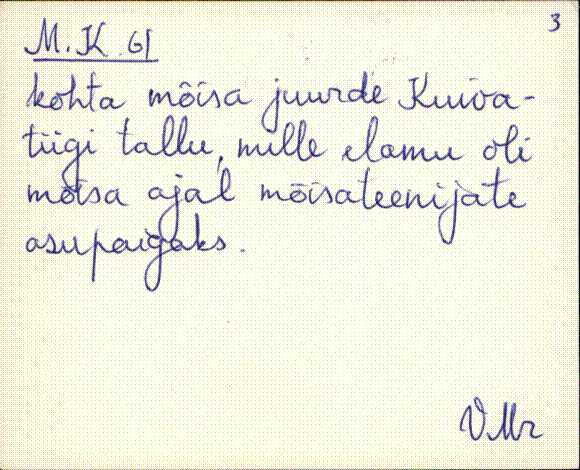 3
M.K. 61
kohta mõisa juurde Kuiva-
tiigi tallu, mille elamu oli
mõisa ajal mõisateenijate
asupaigaks.
VMr